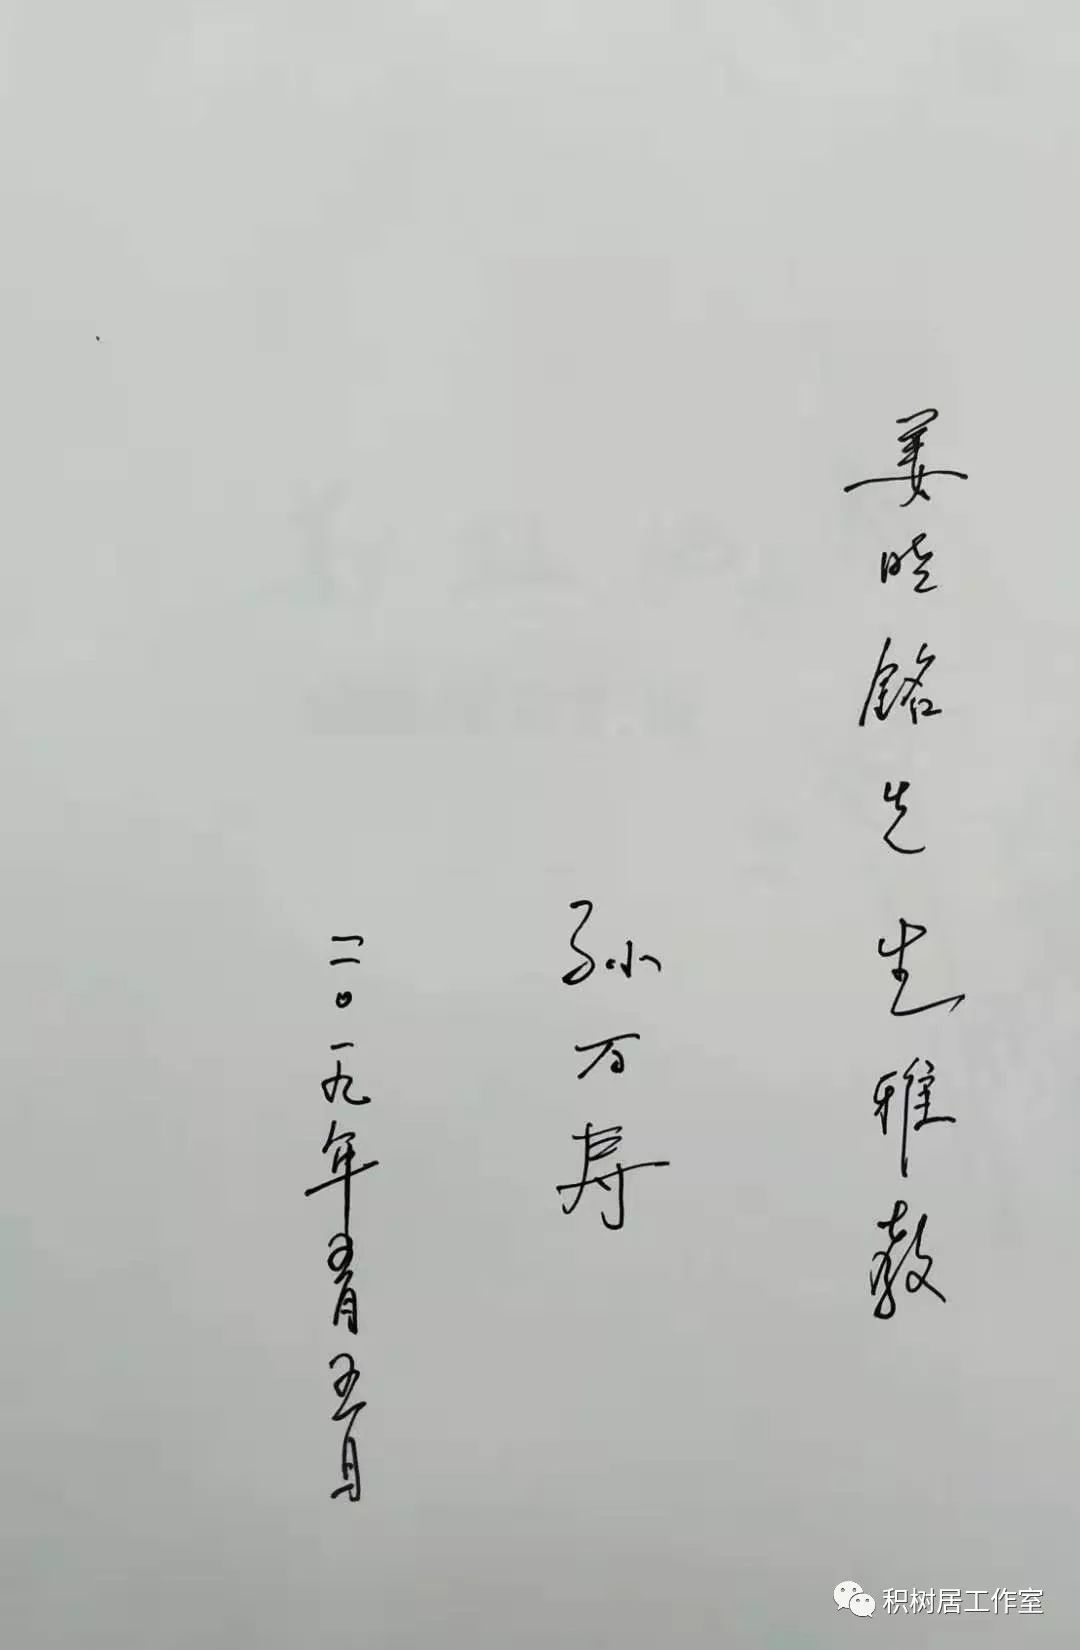 姜晓铭先生雅教
孙万寿
二〇一九年五月五日
积树居工作室